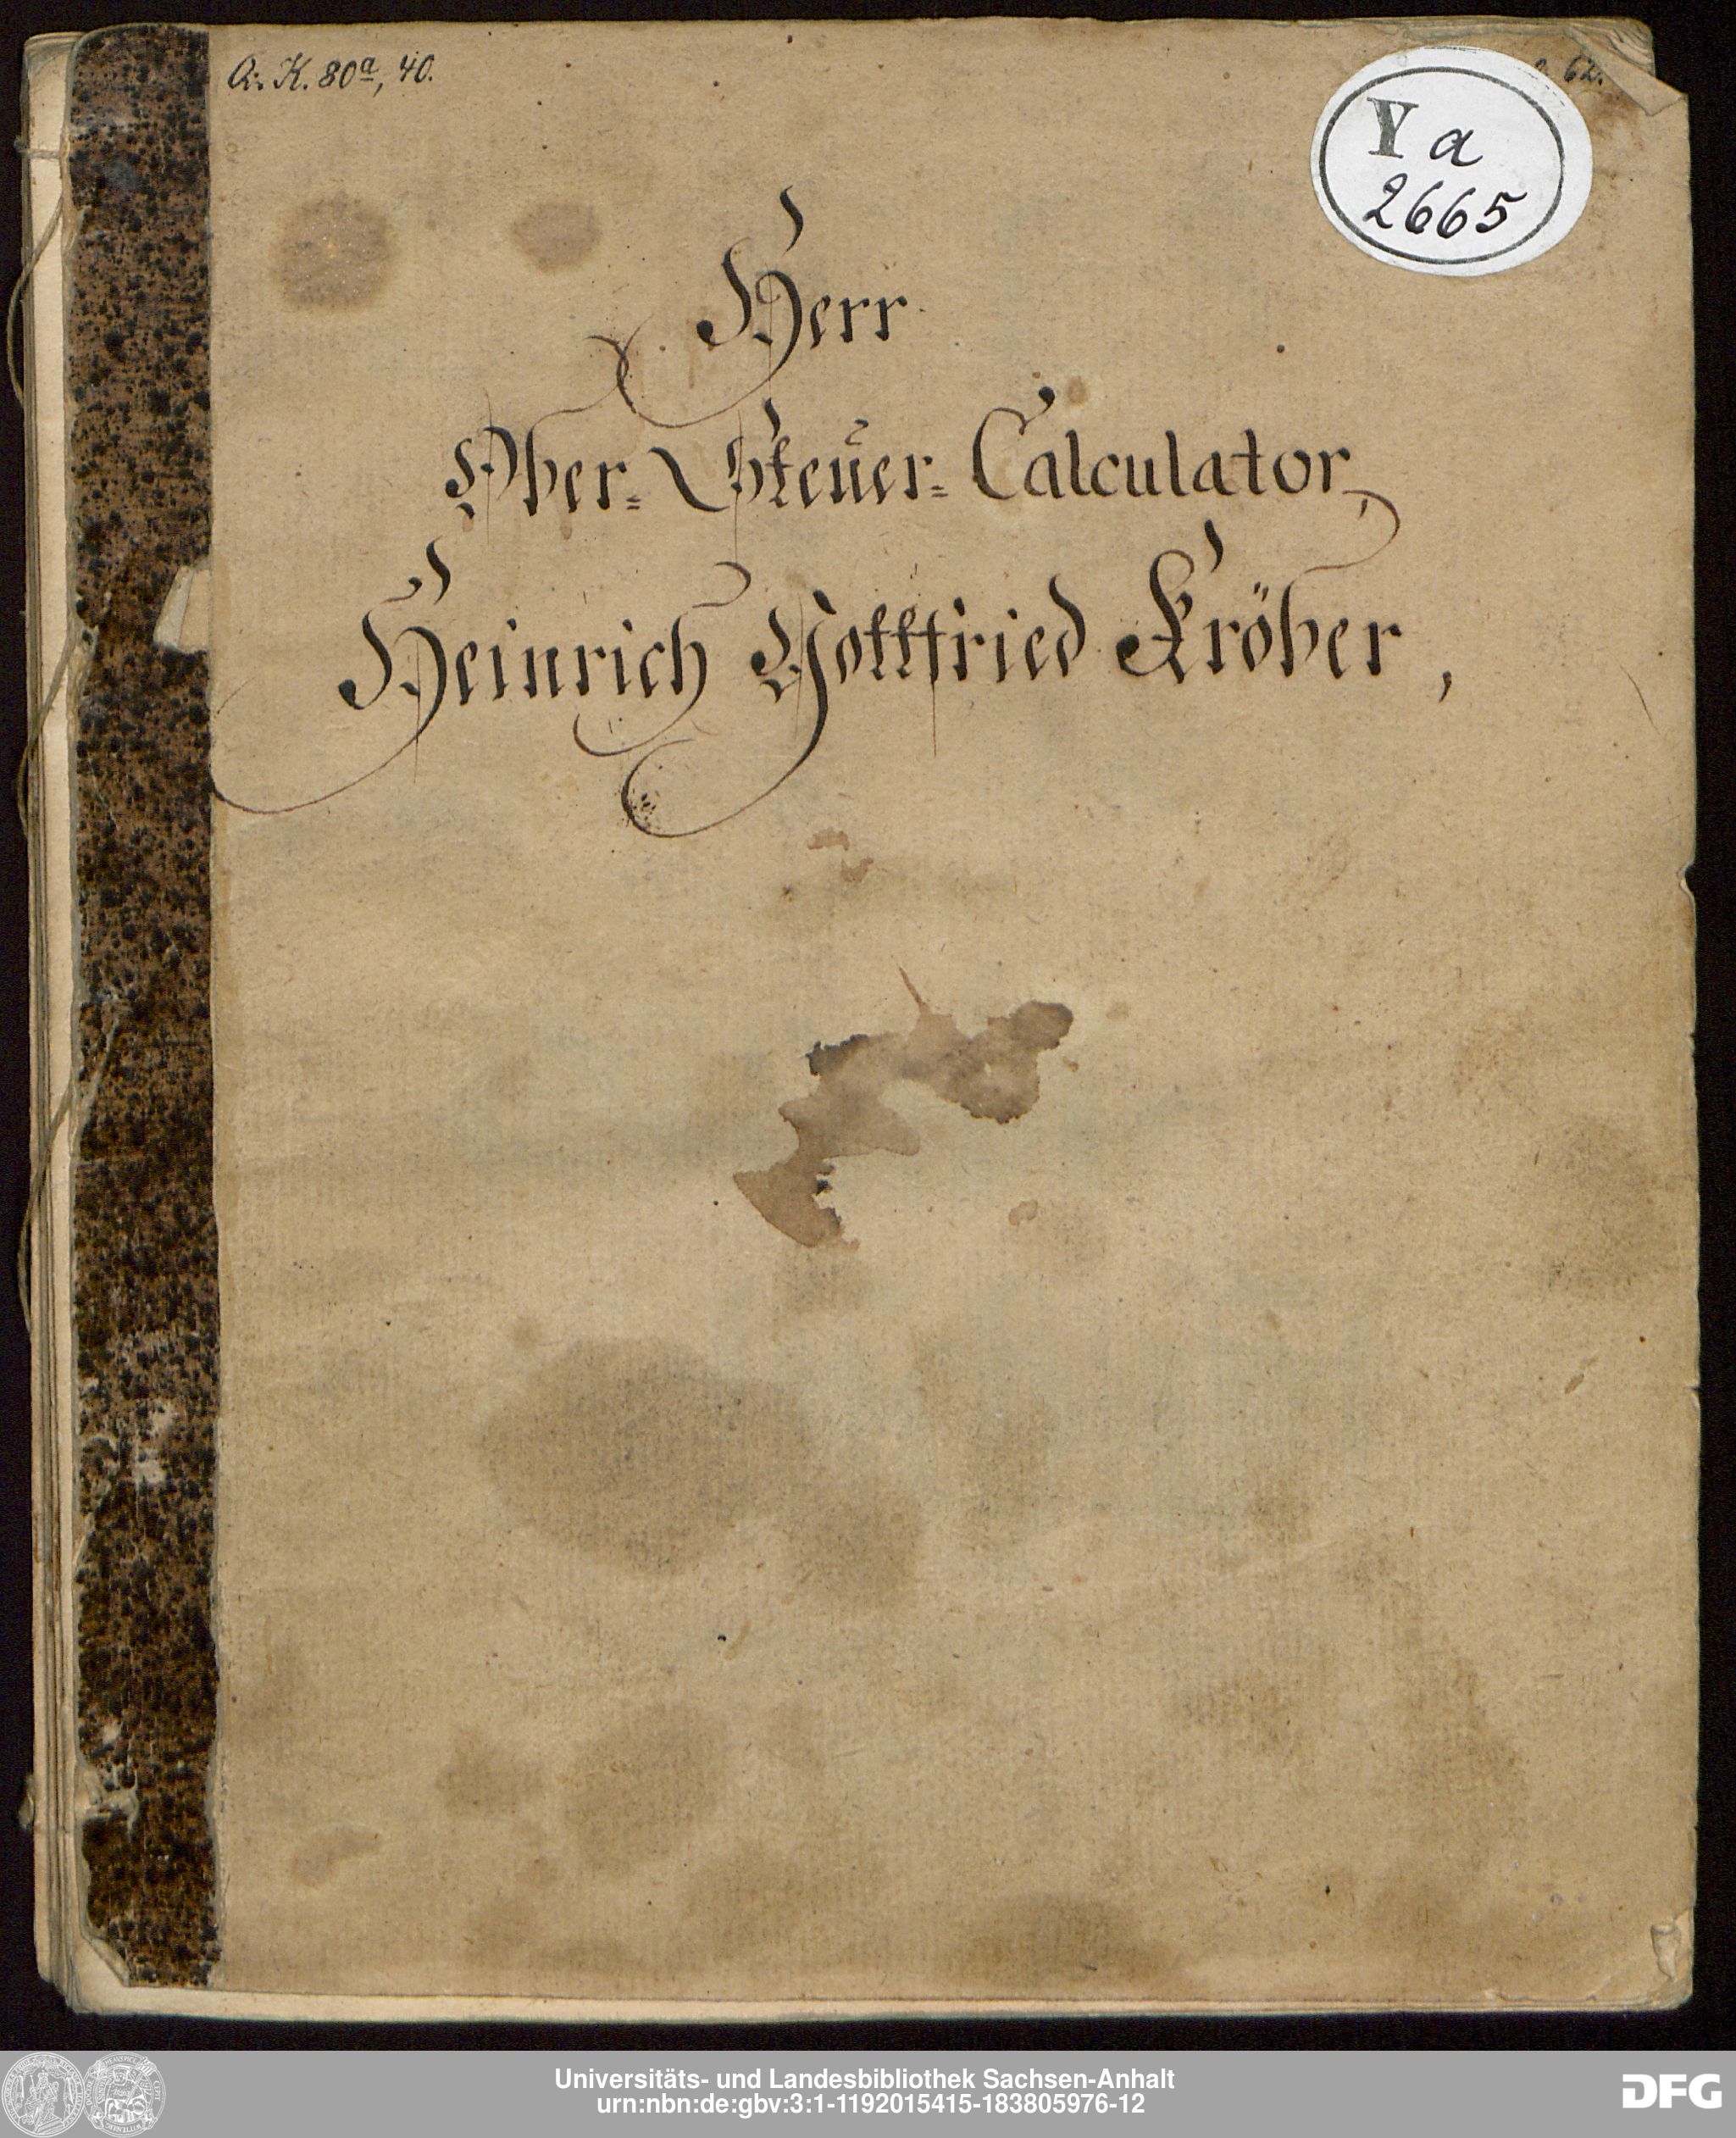 A: K. 80a, 40.
62.
Y a
2665
Herr
Ober= Steuer= Calculator,
Heinrich Gottfried Kröber,
Universitäts- und Landesbibliothek Sachsen-Anhalt
urn:nbn:de:gbv:3:1-1192015415-183805976-12
DFG